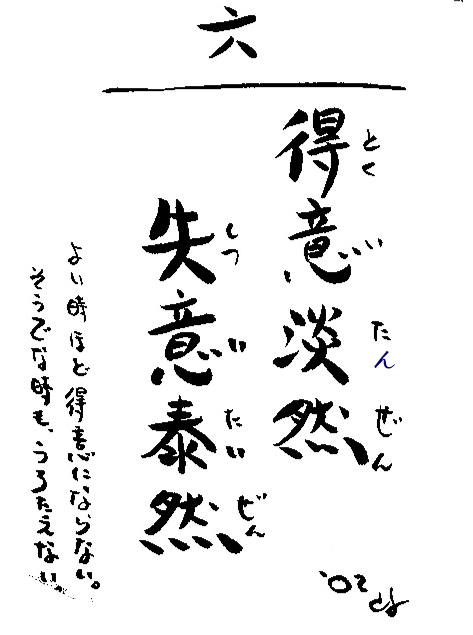 六
得意淡然
とくいたんぜん
失意泰然
しついたいぜん
よい時ほど得意にならない。
そうでな時も、うろたえない。
'02